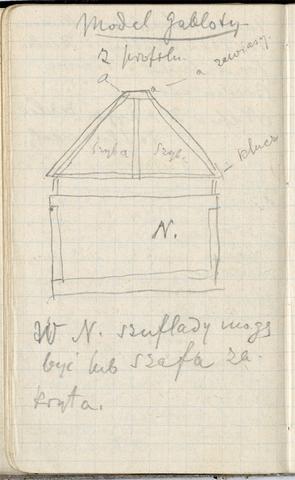 Model gabloty
z profilu
a a — a zawiasy.
szyba szyba
— klucz
N.
W N. szuflady mogą
być lub szafa za-
kryta.